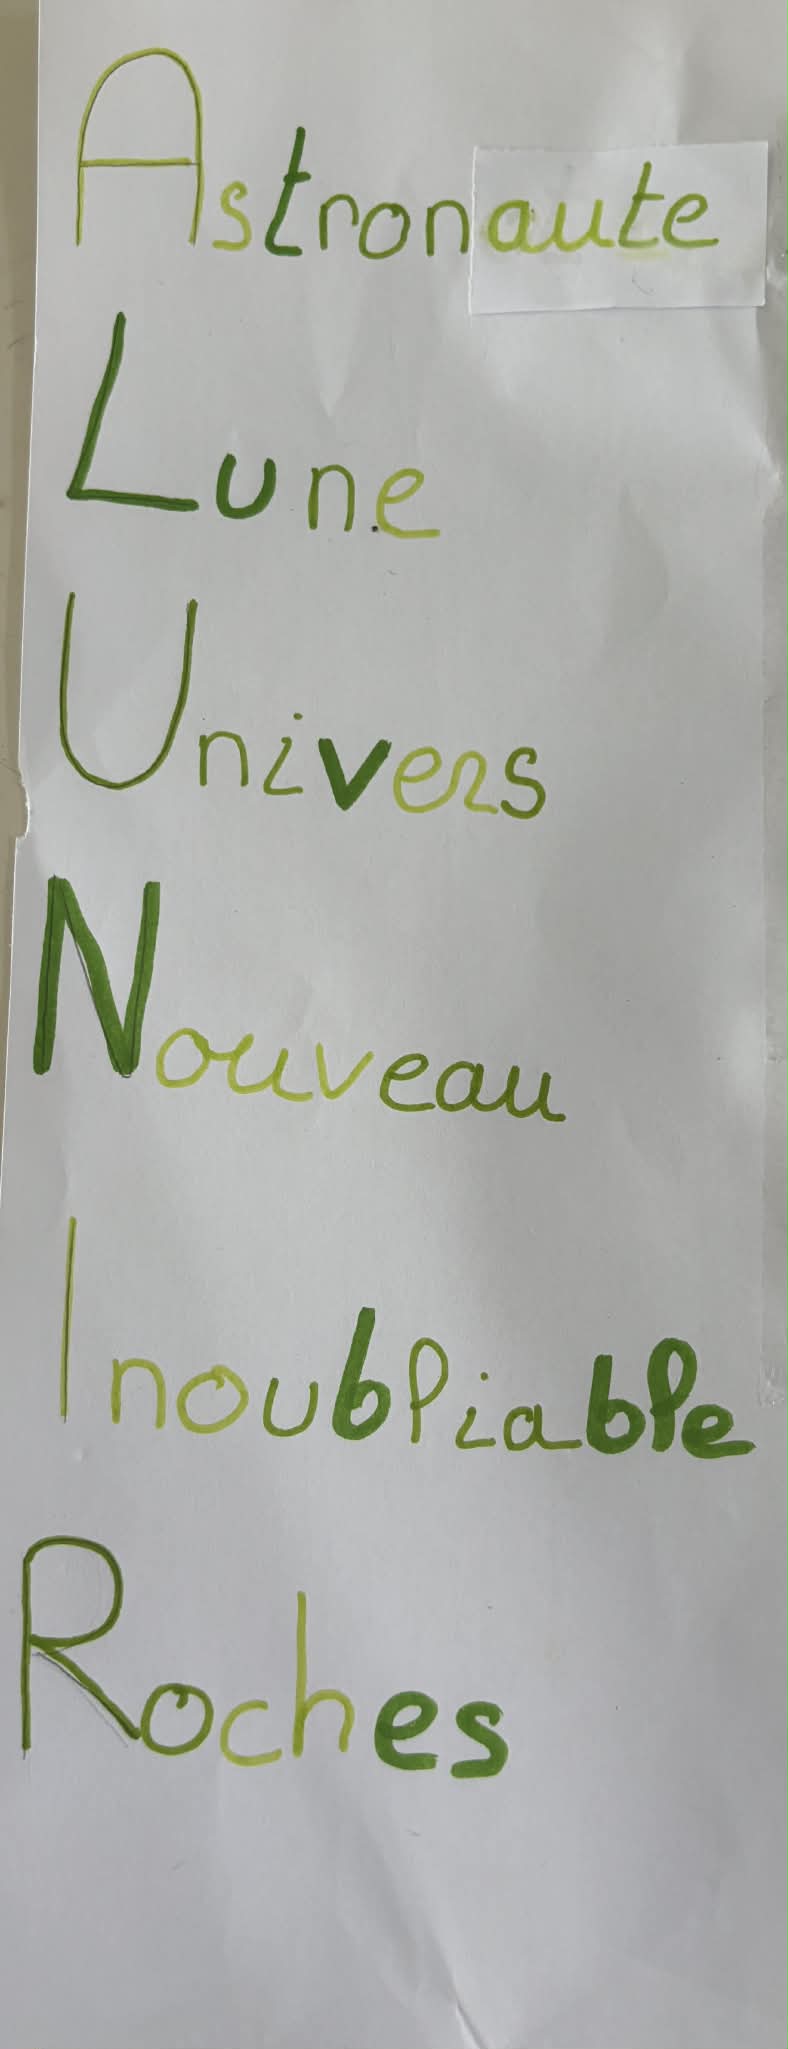 Astronaute
Lune
Univers
Nouveau
Inoubliable
Roches